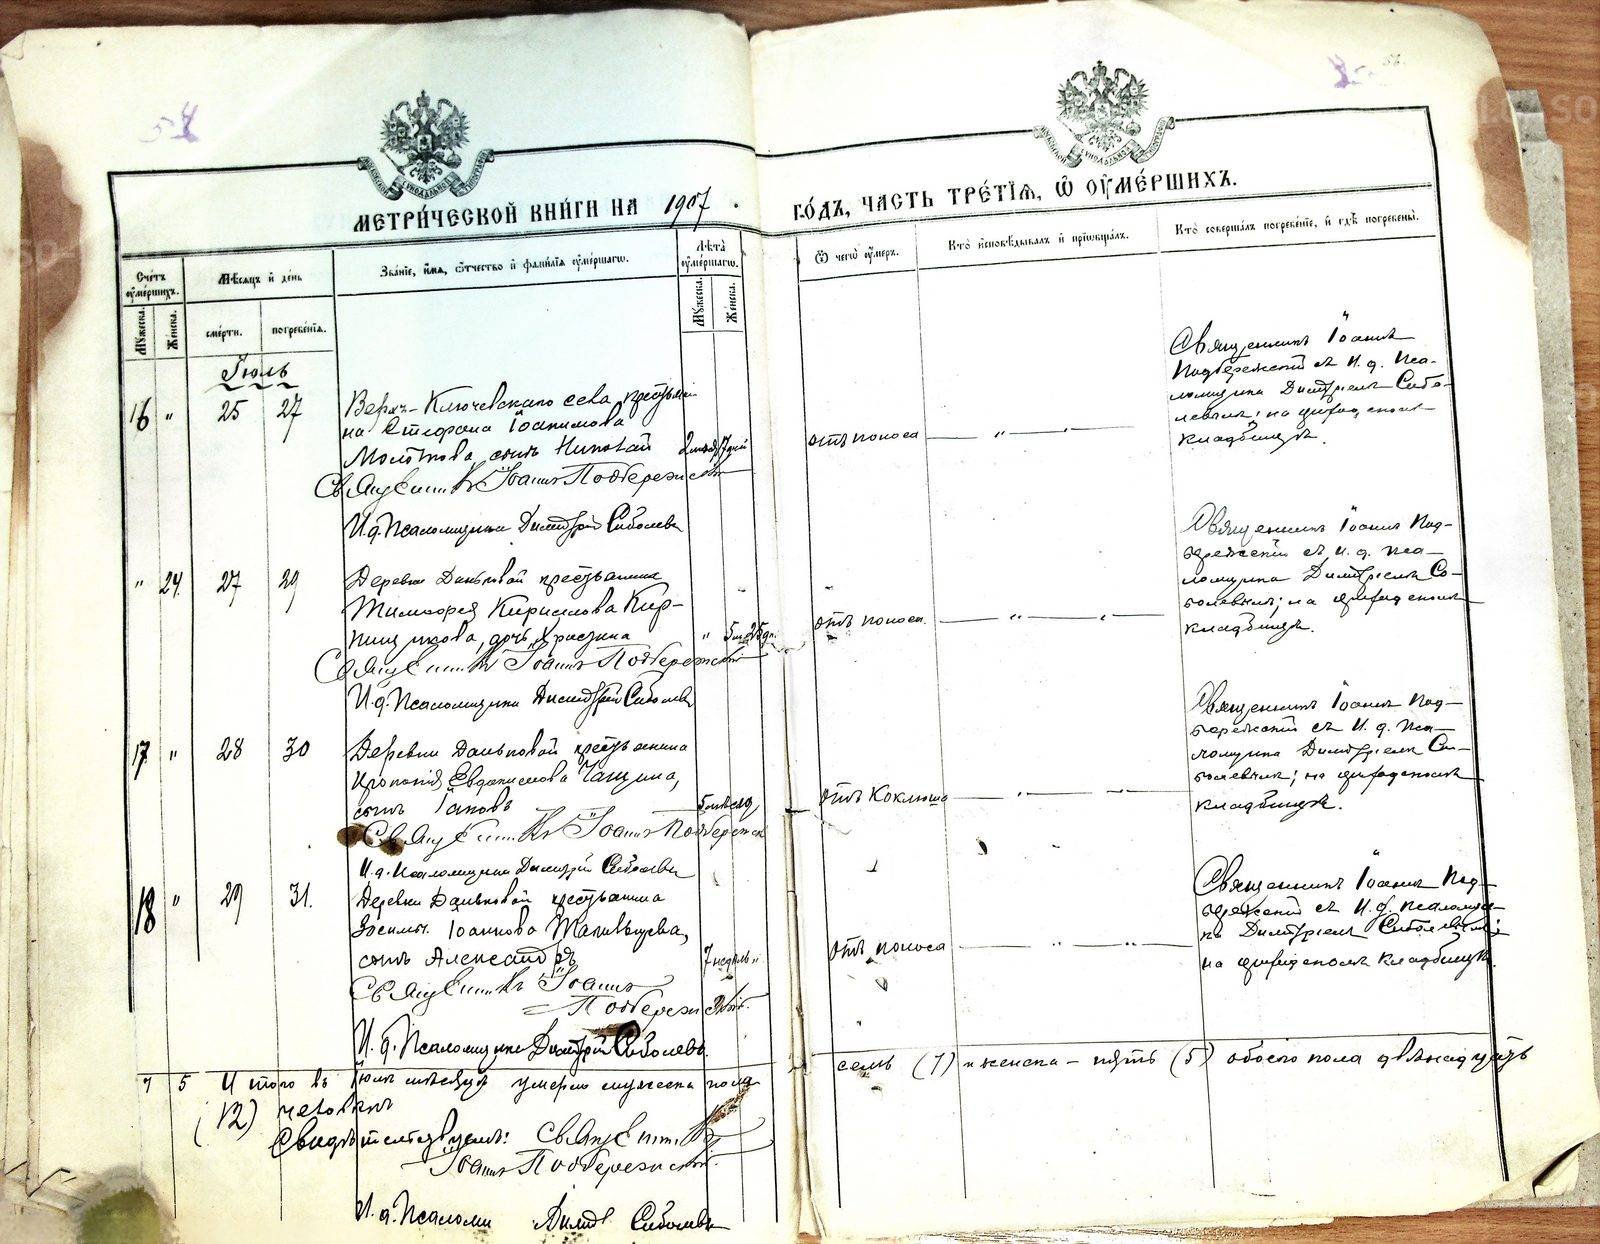 МЕТРИ́ЧЕСКОЙ КНИ́ГИ НА 1907 ГО́ДЪ, ЧАСТЬ ТРЕ́ТІѦ, Ѿ ОУ҆МЕ́РШИХЪ.
Сче́тъ оу҆ме́ршихъ.
Му́жеска.
Же́нска.
Мѣ́сяцъ и҆ де́нь
сме́рти.
погребе́нїѧ.
Зва́нїе, и҆́мѧ, ѻ҆́тчество и҆ фами́лїѧ оу҆ме́ршагѡ.
Лѣ́та оу҆ме́ршагѡ.
Му́жеска.
Же́нска.
Ѿ чегѡ̀ оу҆́меръ.
Кто̀ и҆сповѣ́дывалъ и҆ прїѡбща́лъ.
Кто̀ соверша́лъ погребе́нїе, и҆ гдѣ̀ погребены̀.
Іюль
16 " 25 27
Верх-Ключевскаго села крестьяни
на Стефана Іоакимова
Молоткова сынъ Николай
Священникъ Іоаннъ Подбережскій
И. д. Псаломщика Димитрій Соболевъ
отъ поноса
Священникъ Іоаннъ
Подбережскій съ И. д. Пса-
ломщика Димитріемъ Собо-
левымъ; на приходскомъ
кладбищѣ.
" 24 27 29
Деревни Даньковой крестьянина
Тимофея Кириллова Кир-
пищикова, дочь Христина
" 5 м. 25 дн.
Священникъ Іоаннъ Подбережскій
И. д. Псаломщика Димитрій Соболевъ
отъ поноса.
Священникъ Іоаннъ Под-
бережскій съ И. д. Пса-
ломщика Димитріемъ Со-
болевымъ; на приходскомъ
кладбищѣ.
17 " 28 30
Деревни Даньковой крестьянина
Чащина,
сынъ Іаковъ
5 мѣсяц
Священникъ Іоаннъ Подбережск
И. д. Псаломщика Димитрій Соболевъ
отъ Коклюша
Священникъ Іоаннъ Под-
бережскій съ И. д. Пса-
ломщика Димитріемъ Со-
болевымъ; на приходскомъ
кладбищѣ.
18 " 29 31.
Деревни Даньковой крестьянина
Зосимы Іоаннова
сынъ Александръ
7 недѣль "
Священникъ Іоаннъ
Подбережскій.
И. д. Псаломщика Димитрій Соболевъ.
отъ поноса
Священникъ Іоаннъ Под-
бережскій съ И. д. псаломщи-
ка Димитріемъ Соболевымъ;
на приходскомъ кладбищѣ.
7 5 Итого въ Іюлѣ мѣсяцѣ умерло мужеска пола семь (7) и женска – пять (5) обоего пола двѣнадцать
(12) человѣкъ
Свидѣтельствуемъ: Священникъ
Іоаннъ Подбережскій.
И. д. Псаломщ Димит Соболевъ